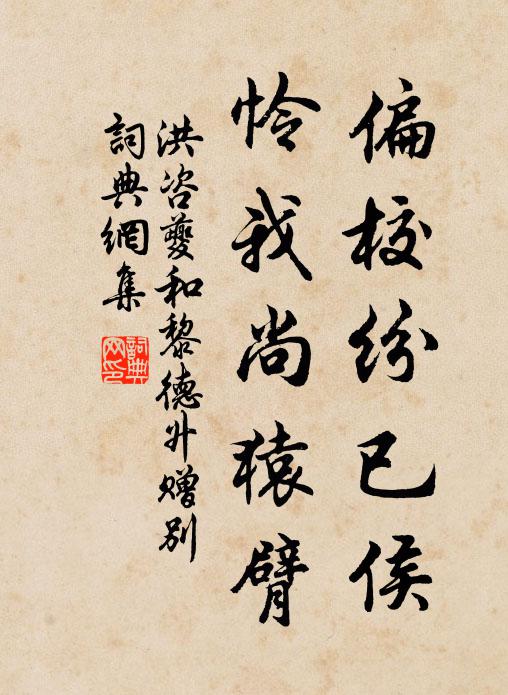 偏校纷已侯
怜我尚猿臂
洪咨夔和黎德升赠别
詞典網集
詞典网印